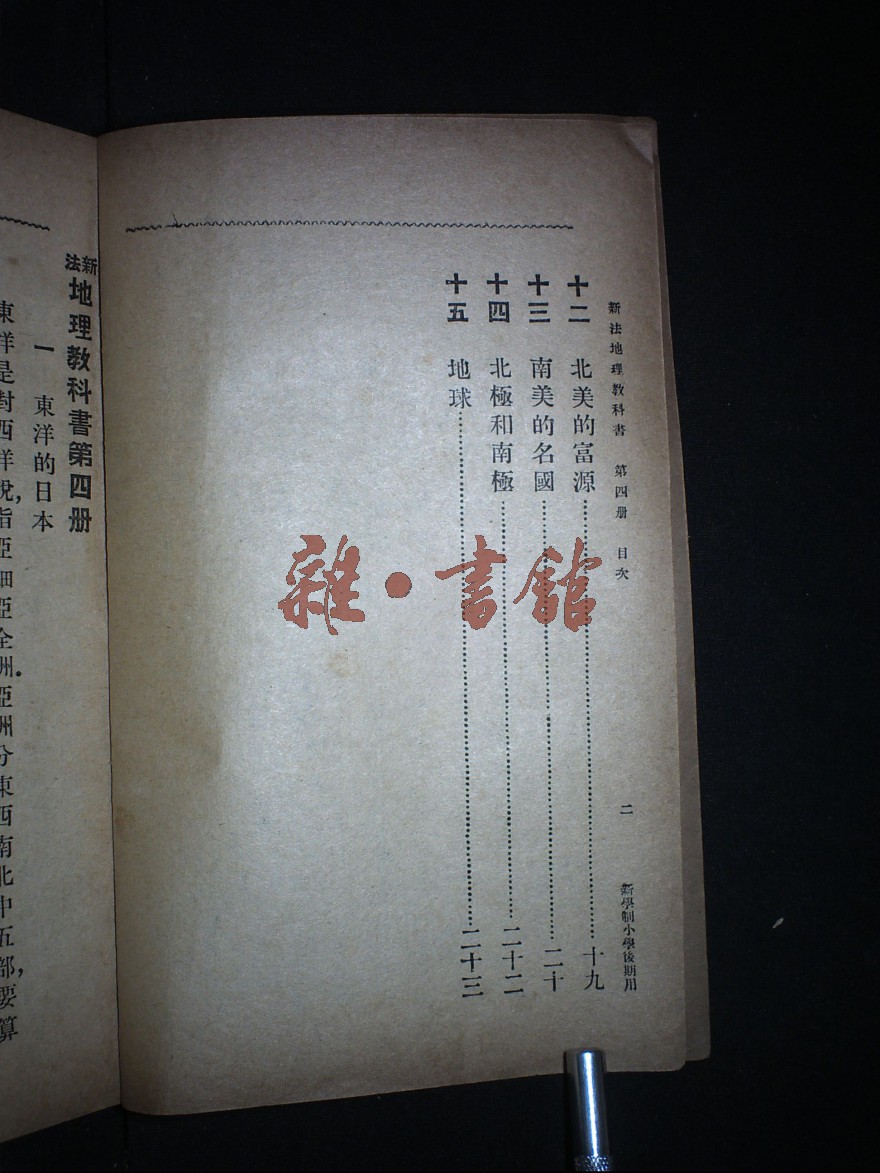 新法地理教科書 第四册 目次 二 新學制小學後期用
十二 北美的富源 十九
十三 南美的名國 二十
十四 北極和南極 二十二
十五 地球 二十三
新法地理教科書第四册
一 東洋的日本
東洋是對西洋說，指亞細亞全洲．亞洲分東西南北中五部，要算
雜·書館